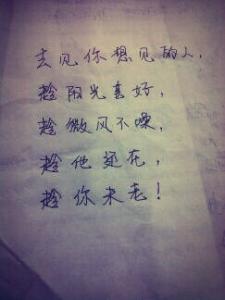 去见你想见的人，
趁阳光喜好，
趁微风不噪，
趁他还在，
趁你未老！